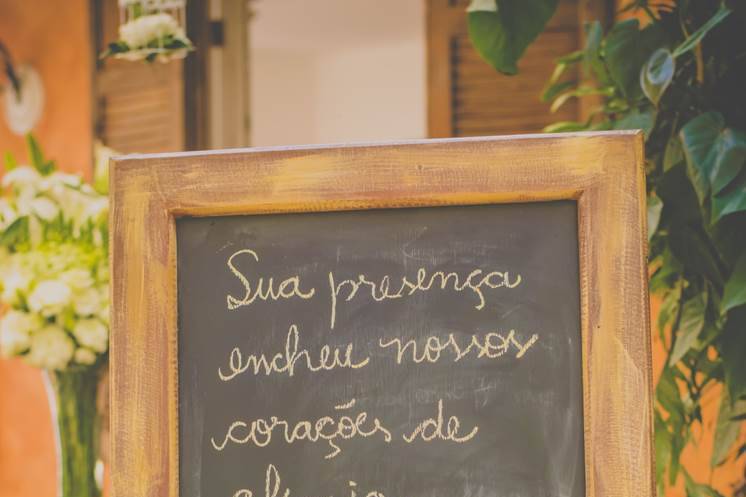 Sua presença
encheu nossos
corações de